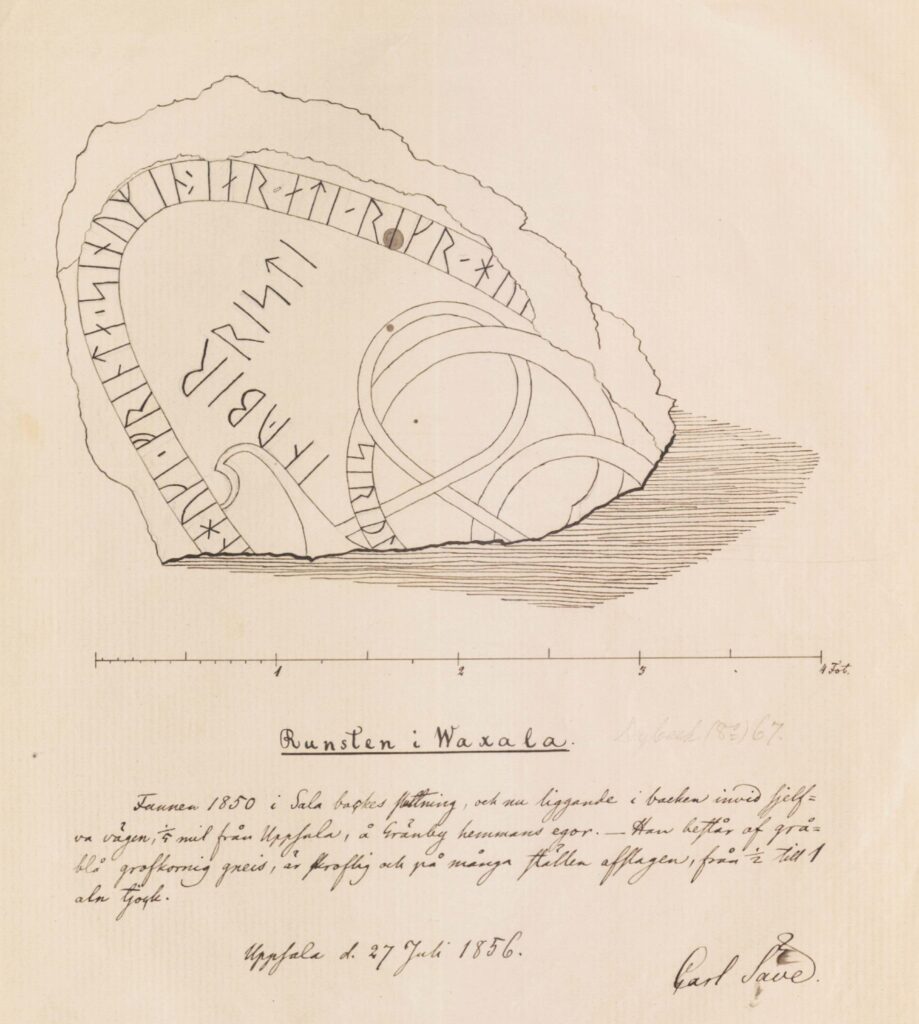 ᚱᛁᛋᛏᛁ
1 2 3 4 Fot.
Runsten i Waxala.
67.
Funnen 1850 i Sala backes sluttning, och nu liggande i backen invid sjelf=
va vägen, 1/5 mil från Uppsala, å Gränby hemmans egor. — Han består af grå=
blå grofkornig gneis, är skroflig och på många ställen afslagen, från ½ till 1
aln tjock.
Uppsala d. 27 Juli 1856.
Carl Säve.